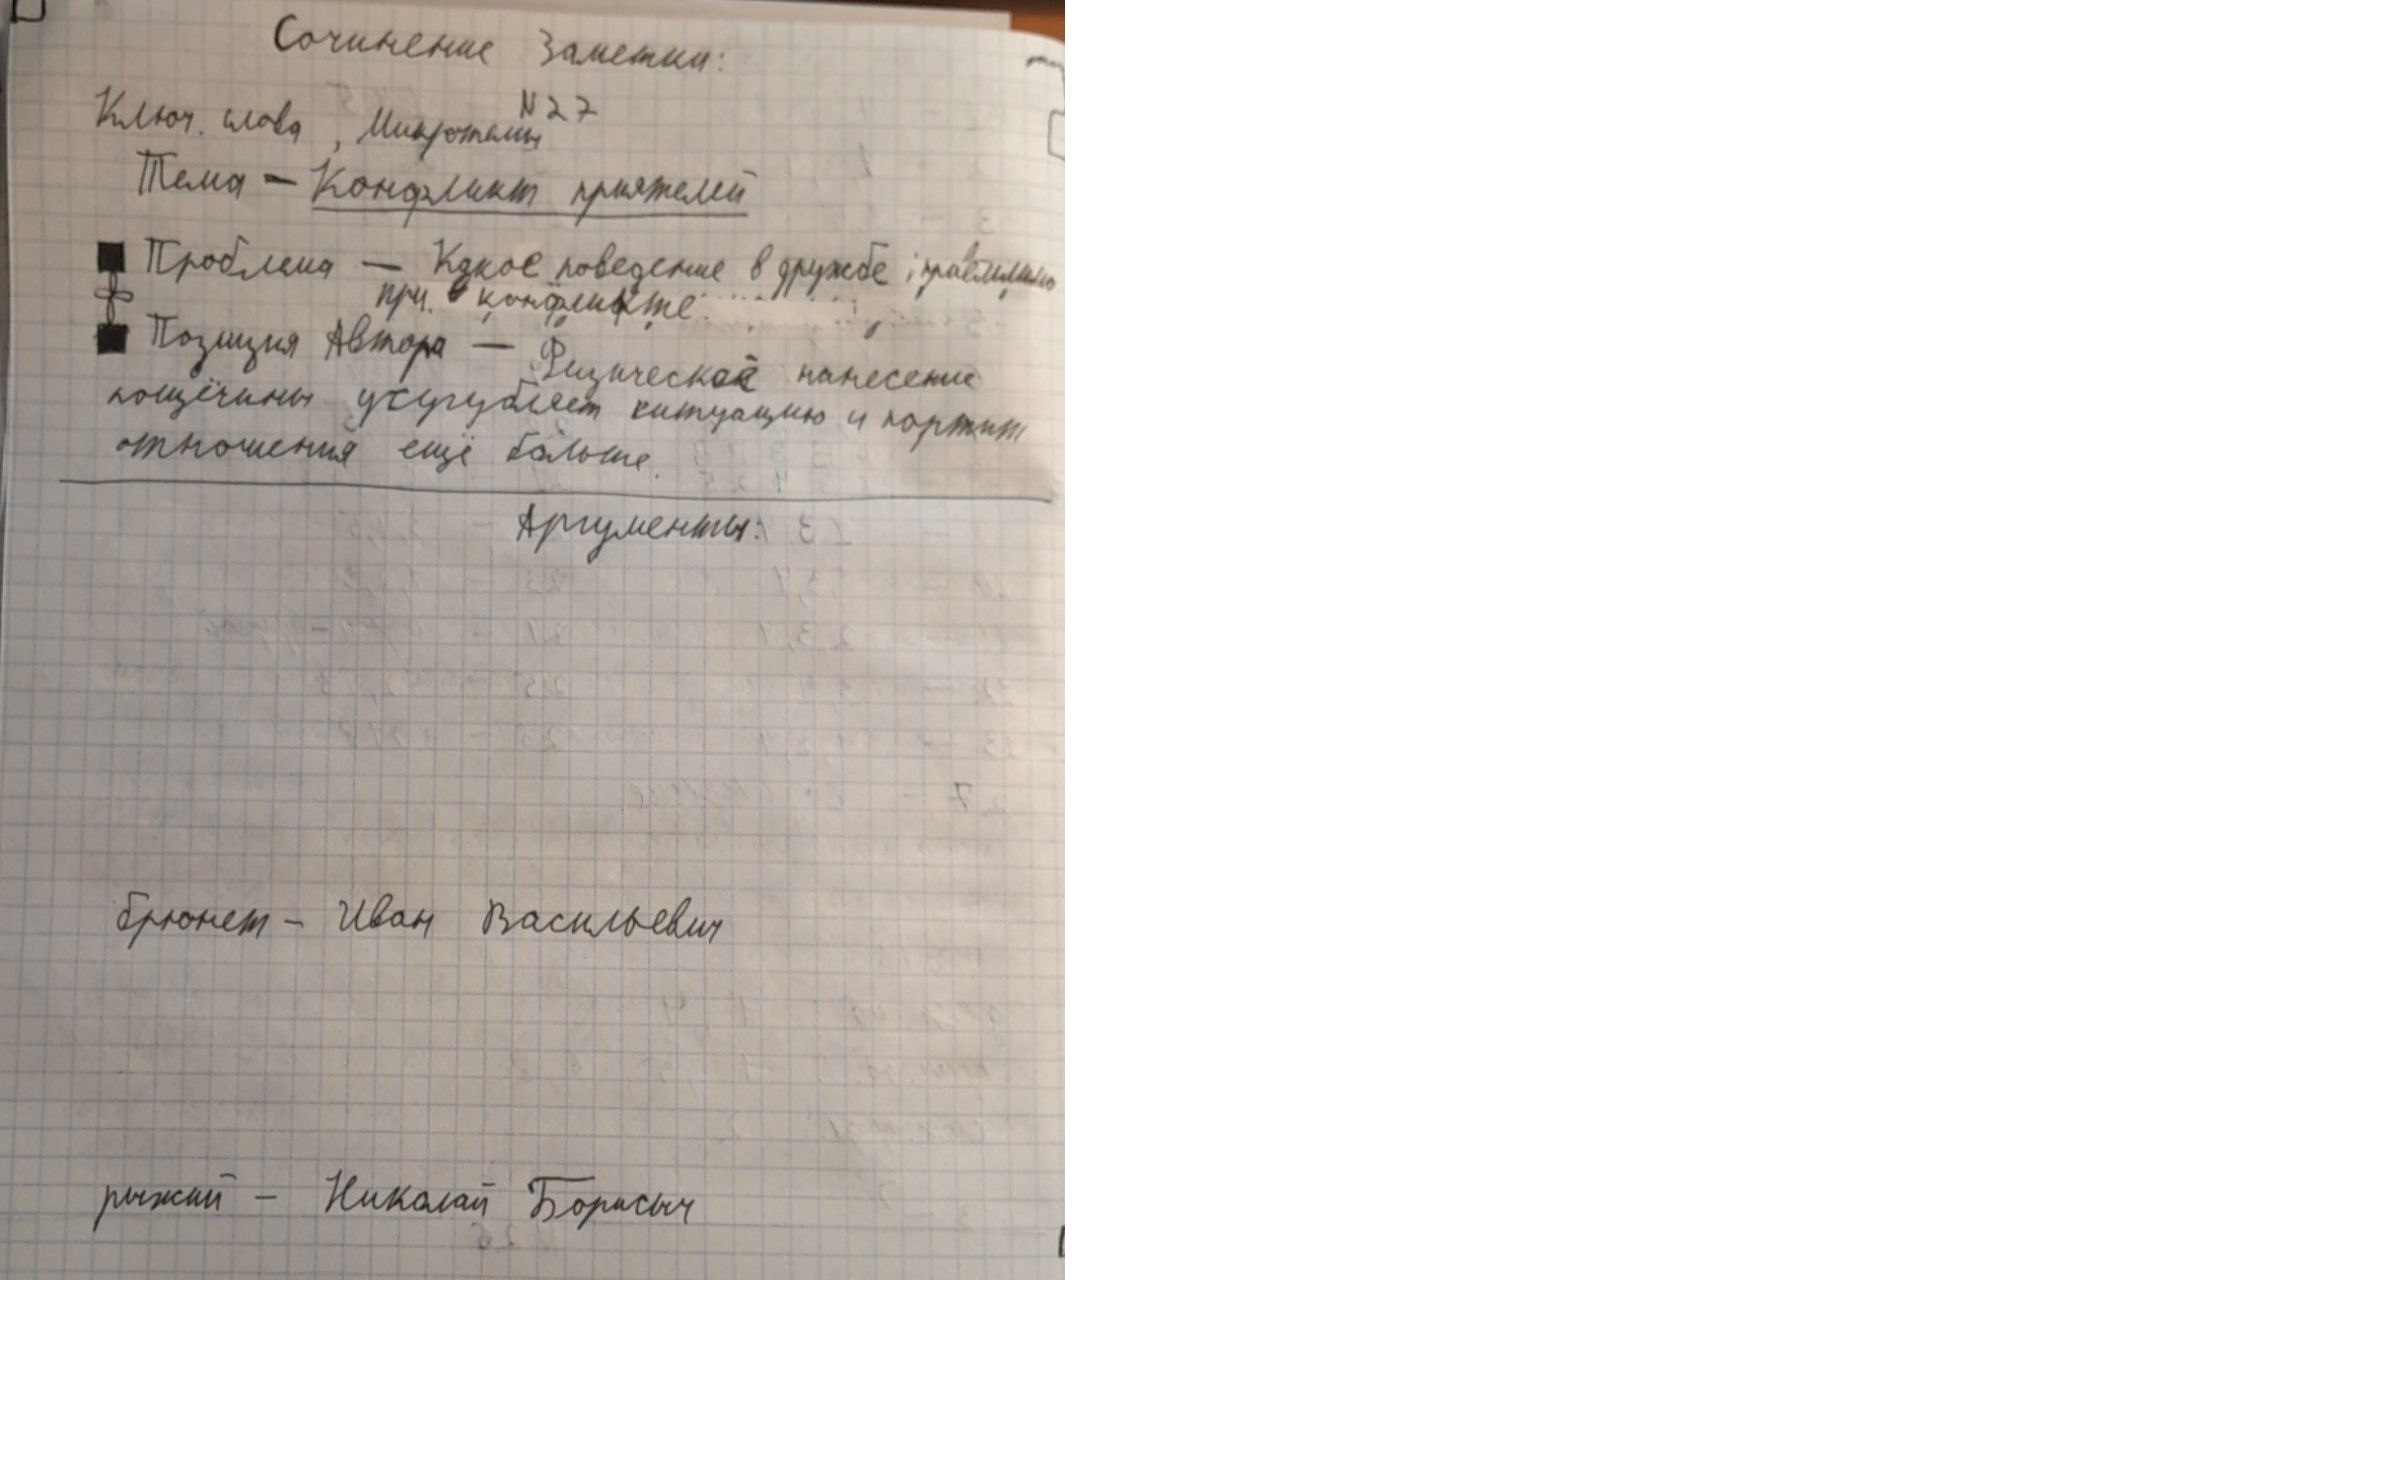 Сочинение Заметки:
№27
Ключ. слова, Микротемы
Тема — Конфликт приятелей
Проблема — Какое поведение в дружбе приемлемо
при конфликте.
Позиция Автора — Физическое нанесение
пощёчины усугубляет ситуацию и портит
отношения ещё больше.
Аргументы:
брюнет — Иван Васильевич
рыжий — Николай Борисыч